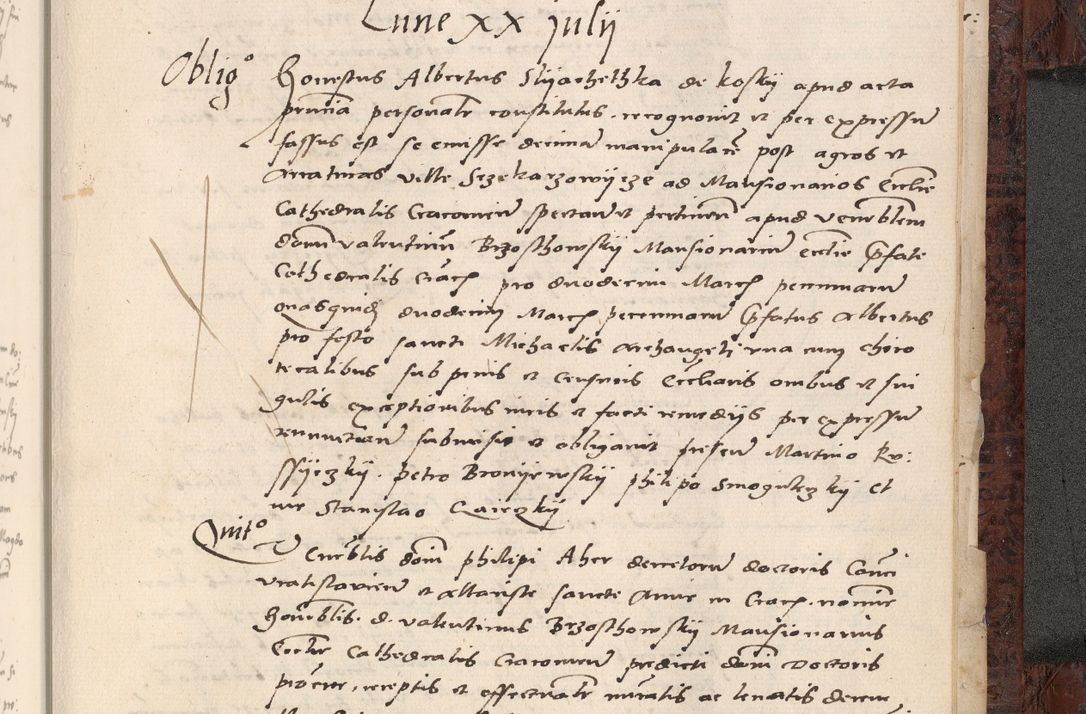 Lune xx julij
Obligº Honestus Albertus Slyachethka de kosky apud acta
pncia personalr constitutus recognovit et per expressu
fassus est se emisse decima manipulare post agros et
Araturas ville Srzekarzowycze ad Mansionarios Ecclie
Cathedralis Cracovien spectan et pertinen apud venerablem
domi valentinu Brzosthowsky Mansionariu ecclie pfate
Cathedralis Crac pro duodecim March pecuniaru
quasquid duodecim March pecuniaru pfatus Albertus
pro festo sancti Michaelis Archangeli una cum chiro
tecalibus sub penis et censuris Eccliaris ombus et sin
gulis exceptionibus iuris et facti remedijs per expressu
renunctian submisit et obligavit presen Martino Ro:
ssyczky. petro Bronyewsky philipo Smogulczky et
me Stanislao Czaiczky
Quitº Venerblis domi philipi Aher decretoru doctoris Canci
vratislavien et altariste sancte Anne in Crac. nomine
honorblis. d. valentinus Brzosthowsky Mansionarius
Ecclie Cathedralis Cracovien predicti domi Doctoris
procur, receptis et effectualr nuratis ac levatis decem